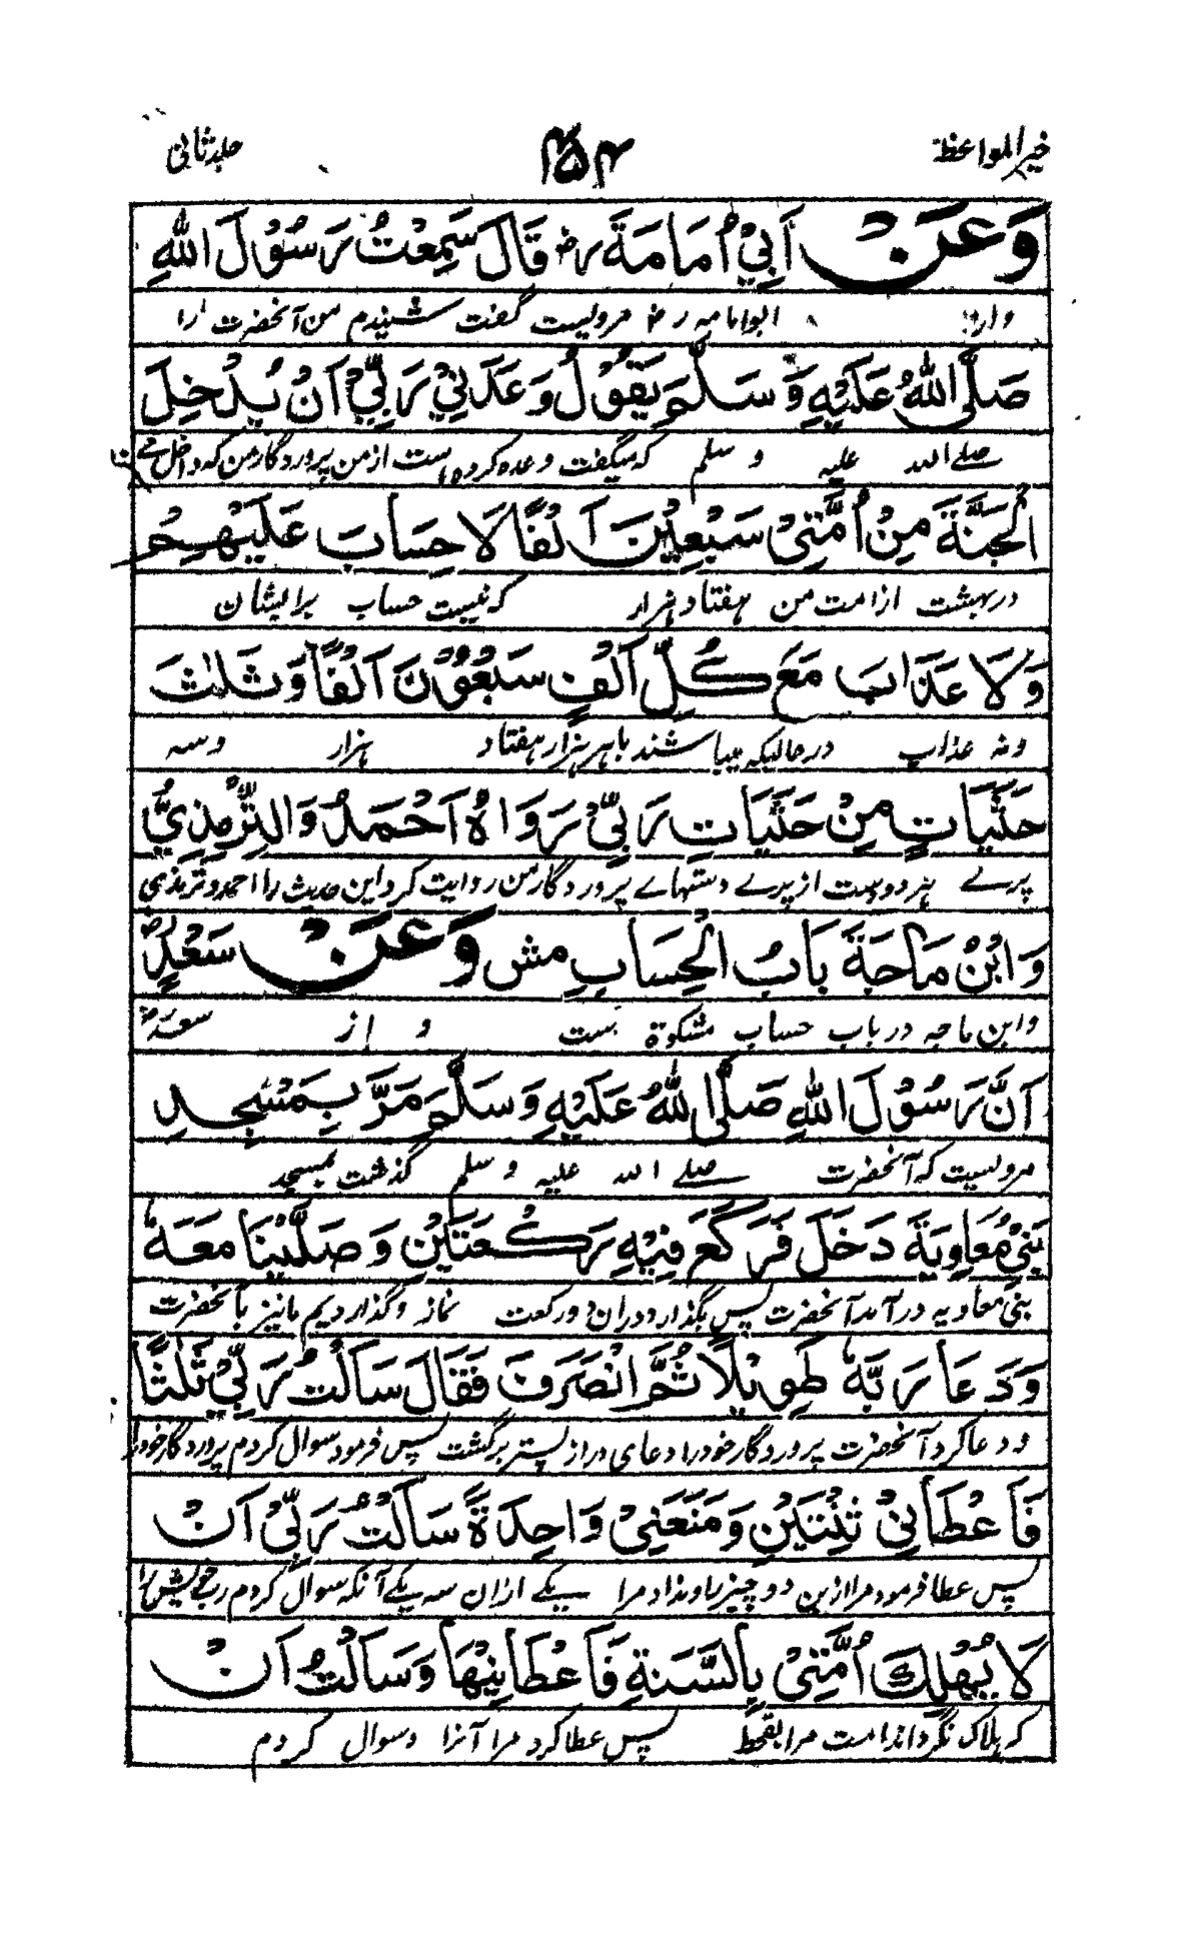 خیر المواعظ ۴۵۴ جلد ثانی
وَعَنْ اَبِيْ اُمَامَةَ رض قَالَ سَمِعْتُ رَسُوْلَ اللّٰهِ
ابو امامه رض مرویست گفت شنیدم من آنحضرت را
صَلَّى اللّٰهُ عَلَيْهِ وَسَلَّمَ يَقُوْلُ وَعَدَنِيْ رَبِّيْ اَنْ يُدْخِلَ
صلے الله علیه و سلم که میگفت وعده کرده است از من پروردگار من که داخل
الْجَنَّةَ مِنْ اُمَّتِيْ سَبْعِيْنَ اَلْفًا لَا حِسَابَ عَلَيْهِمْ
در بهشت از امت من هفتاد هزار که نیست حساب بر ایشان
وَلَا عَذَابَ مَعَ كُلِّ اَلْفٍ سَبْعُوْنَ اَلْفًا وَثَلٰثَ
ونه عذاب در حالیکه میباشند با هر هزار هفتاد هزار وسه
حَثَيَاتٍ مِنْ حَثَيَاتِ رَبِّيْ رَوَاهُ اَحْمَدُ وَالتِّرْمِذِيُّ
پرے هر دو دست از پرے دستهاے پروردگار من روایت کرد این حدیث را احمد و ترمذی
وَابْنُ مَاجَةَ بَابُ الْحِسَابِ مش وَعَنْ سَعْدٍ رض
وابن ماجه در باب حساب مشکوة است و از سعد رض
اَنَّ رَسُوْلَ اللّٰهِ صَلَّى اللّٰهُ عَلَيْهِ وَسَلَّمَ مَرَّ بِمَسْجِدِ
مرویست که آنحضرت صلے الله علیه و سلم گذشت بمسجد
بَنِيْ مُعَاوِيَةَ دَخَلَ فَرَكَعَ فِيْهِ رَكْعَتَيْنِ وَصَلَّيْنَا مَعَهٗ
بنی معاویه در آمد آنحضرت پس بگذارد دران دو رکعت نماز وگذاردیم ما نیز با آنحضرت
وَدَعَا رَبَّهٗ طَوِيْلًا ثُمَّ انْصَرَفَ فَقَالَ سَاَلْتُ رَبِّيْ ثَلٰثًا
ودعا کرد آنحضرت پروردگار خود را دعای دراز پستر برگشت پس فرمود سوال کردم پروردگار خود را
فَاَعْطَانِيْ ثِنْتَيْنِ وَمَنَعَنِيْ وَاحِدَةً سَاَلْتُ رَبِّيْ اَنْ
پس عطا فرمود مرا ازین دو چیز را و نداد مرا یکے ازان سه یکے آنکه سوال کردم رب خویش را
لَا يُهْلِكَ اُمَّتِيْ بِالسَّنَةِ فَاَعْطَانِيْهَا وَسَاَلْتُ اَنْ
که هلاک نگرداند امت مرا بقحط پس عطا کرد مرا آنرا وسوال کردم